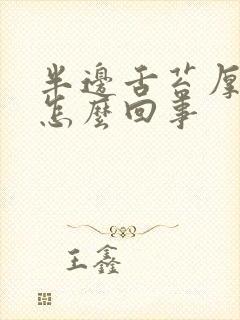 半邊舌苔厚
怎麼回事
王鑫